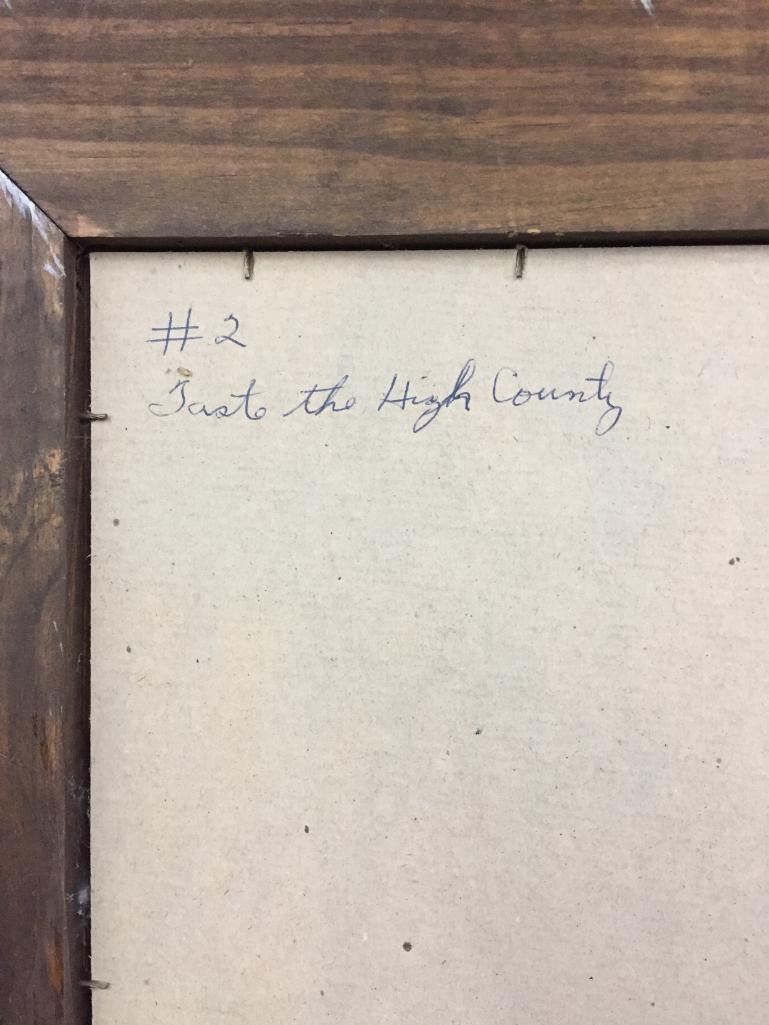 #2
Taste the High County